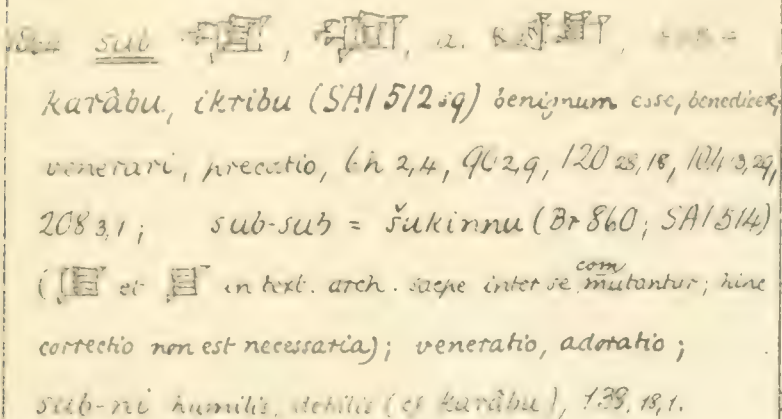 sub , , a. , =
karâbu, ikribu (SAI 512 sq) benignum esse, benedicere,
venerari, precatio, 2,4, 90 2,9, 120 28,18, 104 3,29,
208 3,1; sub-sub = šukinnu (Br 860; SAI 514)
( et in text. arch. saepe inter se commutantur; hinc
correctio non est necessaria); veneratio, adoratio;
sub-ni humilis, debilis (cf karâbu), 139, 18,1.